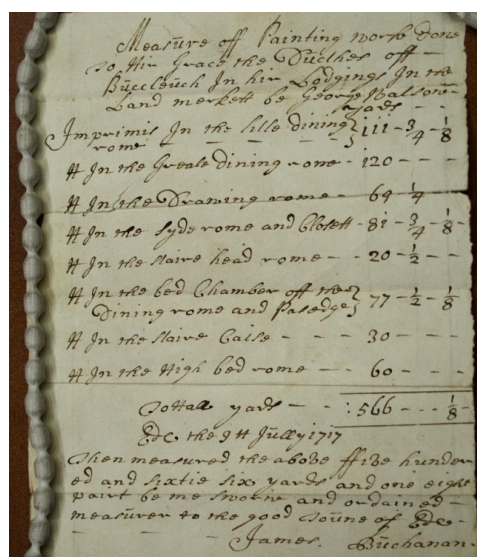 Measure off Painting work done
To Hir Grace the Dutches off
Buccleuch In hir Lodgings In the
Land merkett be George Balfour
yards
Imprimis In the litle dining } 111 - 3/4 - 1/8
rome
It In the Greate dining rome - 120 - - -
It In the Drawing rome - 64 1/4
It In the syde rome and Closett - 81 - 3/4 - 1/8
It In the staire head rome - - 20 - 1/2 - -
It In the bed Chamber off the } 77 - 1/2 - 1/8
Dining rome and Pasedge
It In the staire Caise - - - 30 - - -
It In the High bed rome - - 60 - - -
Totall yards - - : 566 - - - 1/8
Edr. the 9t Jully 1717
Then measured the above ffive hunder
ed and sixtie six yards and one eight
pairt be me sworne and ordained
measurer to the good Toune of Edr
James Buchanan